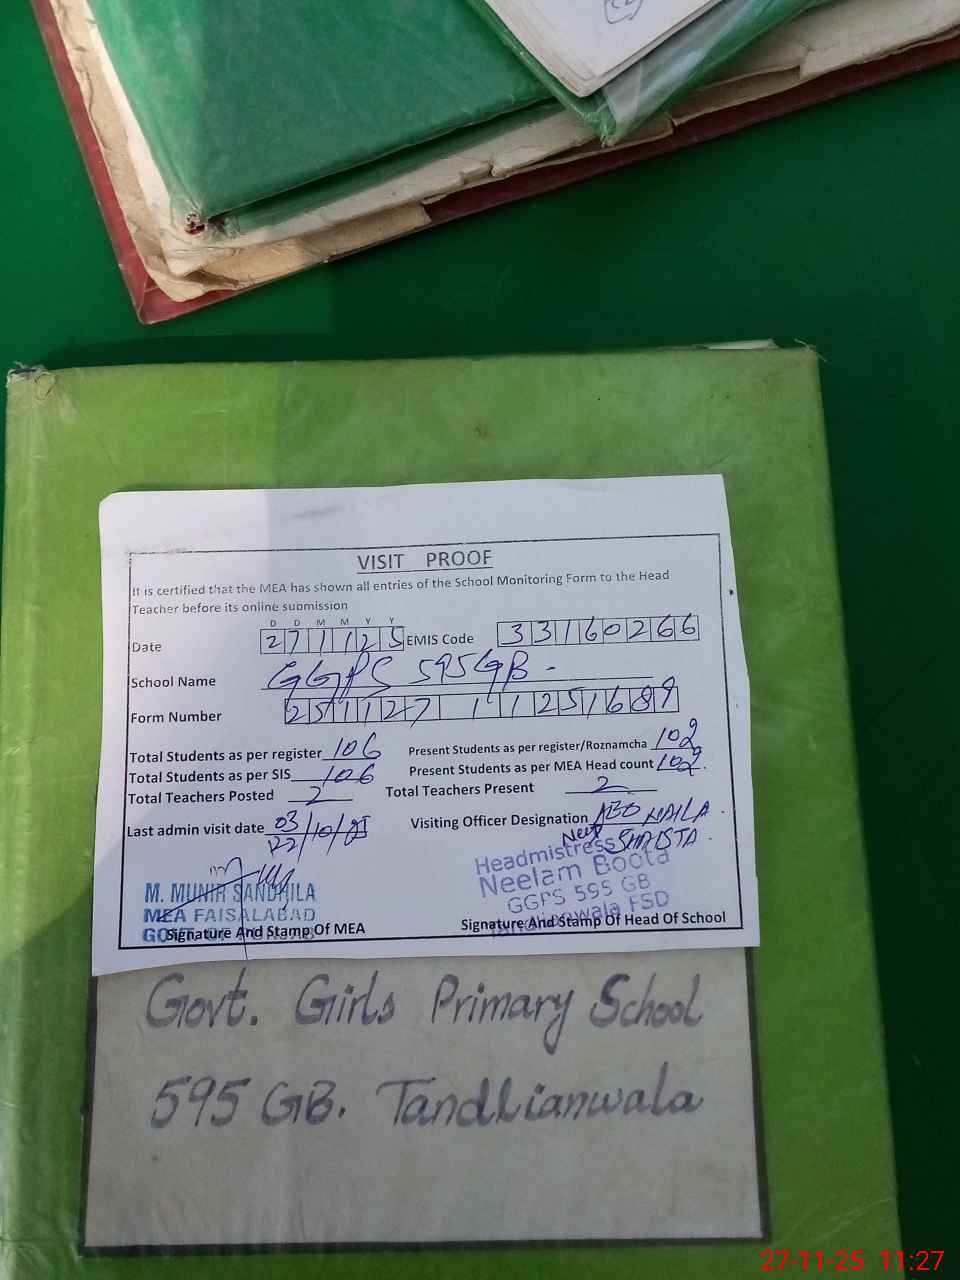 VISIT PROOF
It is certified that the MEA has shown all entries of the School Monitoring Form to the Head
Teacher before its online submission
D D M M Y Y
Date 271125 EMIS Code 33160266
School Name GGPS 595GB.
Form Number 251127 1 1251689
Total Students as per register 106 Present Students as per register/Roznamcha 102
Total Students as per SIS 106 Present Students as per MEA Head count 102.
Total Teachers Posted 2 Total Teachers Present 2
Last admin visit date 03/10/25 Visiting Officer Designation AEO NAILA
22 SHAISTA.
M. MUNIR SANDHILA
MEA FAISALABAD
Headmistress
Neelam Boota
GGPS 595 GB
Tandlianwala FSD
Signature And Stamp Of MEA Signature And Stamp Of Head Of School
Govt. Girls Primary School
595 GB. Tandlianwala
27-11-25 11:27